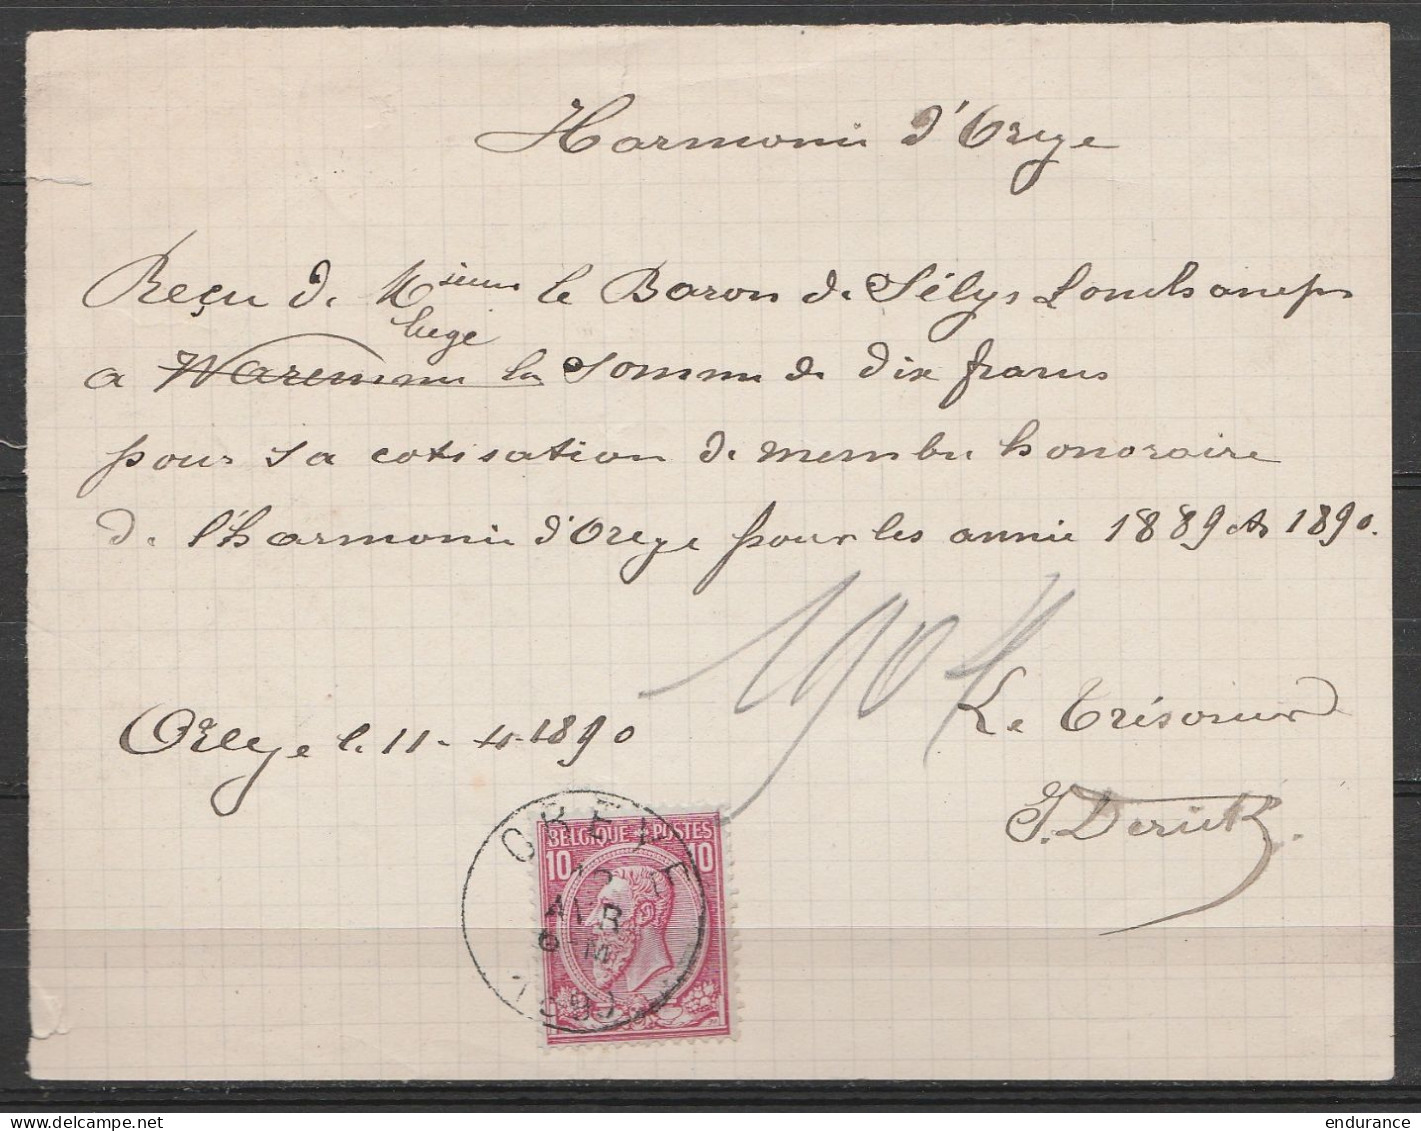 Harmonie d'Oreye
Reçu de Msieur le Baron de Sélys Lonchamps
liege
a Waremme la somme de dix francs
pour sa cotisation de membre honoraire
de l'harmonie d'Oreye pour les année 1889 et 1890.
190
Oreye le 11-4-1890
Le trésorier
OREYE
BELGIQUE POSTES
10 10
12
AVR
6-M
1890
endurance